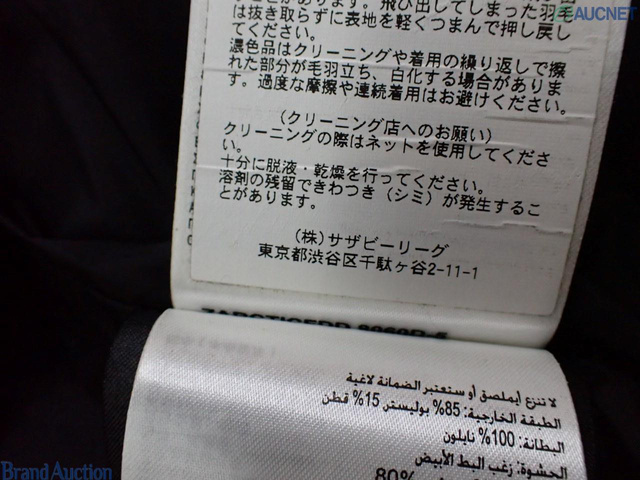 AUCNET
とがあります。飛び出してしまった羽毛
は抜き取らずに表地を軽くつまんで押し戻し
てください。
濃色品はクリーニングや着用の繰り返しで擦
れた部分が毛羽立ち、白化する場合がありま
す。過度な摩擦や連続着用はお避けください。
(クリーニング店へのお願い)
クリーニングの際はネットを使用してくださ
い。
十分に脱液・乾燥を行ってください。
溶剤の残留できわつき（シミ）が発生するこ
とがあります。
(株) サザビーリーグ
東京都渋谷区千駄ヶ谷2-11-1
لا تنزع أيملصق أو ستعتبر الضمانة لاغية
الطبقة الخارجية: 85% بوليستر 15% قطن
البطانة: 100% نايلون
الحشوة: زغب البط الأبيض
80%
Brand Auction